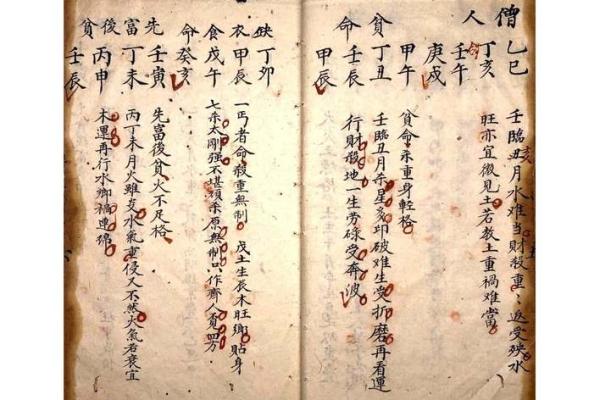 僧人
乙巳
丁亥
壬午
庚戌
壬臨丑亥月水難当財殺重、返受殃水
旺亦宜微見土若教土重禍難當
貧命
甲午
丁丑
壬辰
甲辰
貧命杀重身輕格
壬臨丑月杀星多印破難生受折磨再看運
行財殺地一生劳碌受奔波
缺衣食命
丁卯
甲辰
戊午
癸亥
一丐者命殺重無制
戊土生辰木旺鄉貼身
七杀太剛强不堪煩杀原無制只作齊人覓四方
先富後貧
壬寅
丁未
丙申
壬辰
先富後貧火不足格
丙丁未月火雖炎水氣重侵又不然火氣若衰宜
木運再行水鄉禍連綿